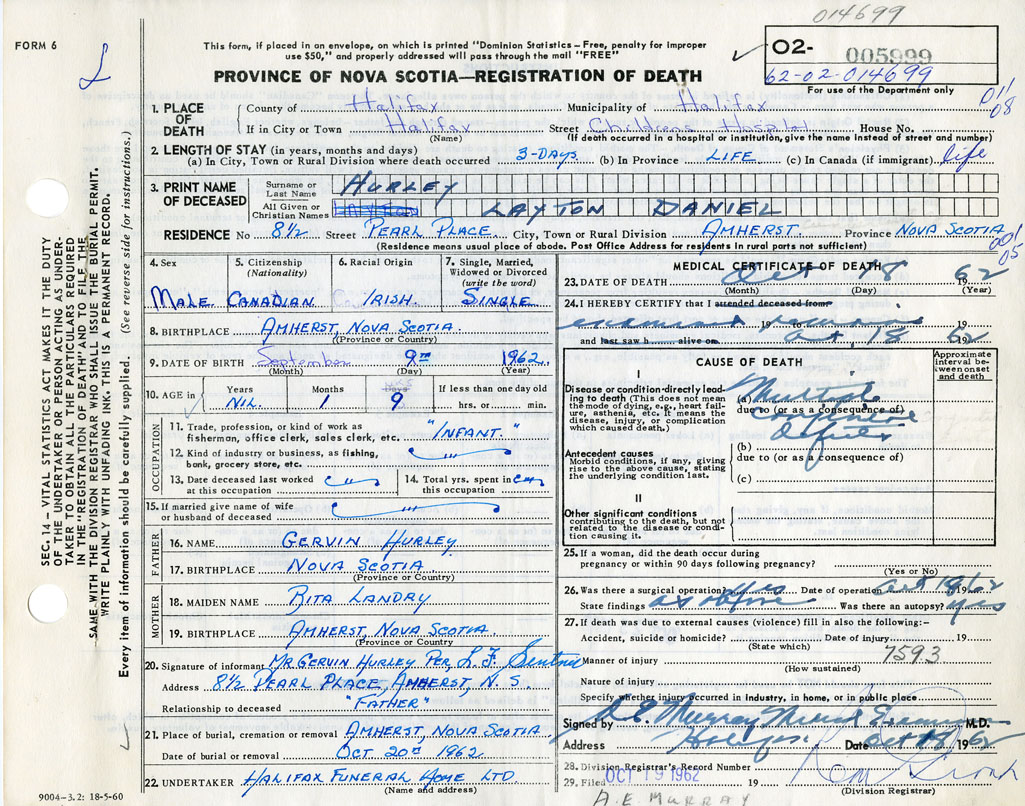 014699
FORM 6
This form, if placed in an envelope, on which is printed "Dominion Statistics – Free, penalty for improper
use $50," and properly addressed will pass through the mail "FREE"
PROVINCE OF NOVA SCOTIA—REGISTRATION OF DEATH
O2- 005999
62-02-014699
For use of the Department only
011
08
1. PLACE OF DEATH
County of Halifax Municipality of Halifax
If in City or Town Halifax Street Childrens Hospital House No.
(Name) (If death occurred in a hospital or institution, give the name instead of street and number)
2. LENGTH OF STAY (in years, months and days)
(a) In City, Town or Rural Division where death occurred 3-DAYS (b) In Province LIFE (c) In Canada (if immigrant) life
3. PRINT NAME OF DECEASED
Surname or Last Name HURLEY
All Given or Christian Names LAYTON DANIEL
RESIDENCE No 8½ Street PEARL PLACE City, Town or Rural Division AMHERST Province NOVA SCOTIA
(Residence means usual place of abode. Post Office Address for residents in rural parts not sufficient)
001
05
4. Sex 5. Citizenship (Nationality) 6. Racial Origin 7. Single, Married, Widowed or Divorced (write the word)
MALE CANADIAN IRISH SINGLE
8. BIRTHPLACE AMHERST, NOVA SCOTIA.
(Province or Country)
9. DATE OF BIRTH September 9TH 1962
(Month) (Day) (Year)
10. AGE in Years Months If less than one day old
NIL. 1 9 hrs. or min.
OCCUPATION
11. Trade, profession, or kind of work as fisherman, office clerk, sales clerk, etc. "INFANT."
12. Kind of industry or business, as fishing, bank, grocery store, etc.
13. Date deceased last worked at this occupation
14. Total yrs. spent in this occupation
15. If married give name of wife or husband of deceased
FATHER
16. NAME GERVIN HURLEY
17. BIRTHPLACE NOVA SCOTIA
(Province or Country)
MOTHER
18. MAIDEN NAME RITA LANDRY
19. BIRTHPLACE AMHERST, NOVA SCOTIA.
(Province or Country)
20. Signature of informant MR GERVIN HURLEY PER, L. F.
Address 8½ PEARL PLACE, AMHERST, N. S.
Relationship to deceased "FATHER"
21. Place of burial, cremation or removal AMHERST, NOVA SCOTIA
Date of burial or removal OCT 20TH 1962
22. UNDERTAKER HALIFAX FUNERAL HOME LTD.
(Name and address)
9004-3.2: 18-5-60
MEDICAL CERTIFICATE OF DEATH
23. DATE OF DEATH Oct 18 1962
(Month) (Day) (Year)
24. I HEREBY CERTIFY that I attended deceased from
examined remains 19 to 19
and last saw h alive on Oct 18 1962
CAUSE OF DEATH
Approximate interval between onset and death
I
Disease or condition directly leading to death (This does not mean the mode of dying, e.g., heart failure, asthenia, etc. It means the disease, injury, or complication which caused death.)
(a) Multiple
due to (or as a consequence of)
defects
Antecedent causes
Morbid conditions, if any, giving rise to the above cause, stating the underlying condition last.
(b)
due to (or as a consequence of)
(c)
II
Other significant conditions
contributing to the death, but not related to the disease or condition causing it.
25. If a woman, did the death occur during pregnancy or within 90 days following pregnancy?
(Yes or No)
26. Was there a surgical operation? yes Date of operation Oct 1962
State findings as above Was there an autopsy? yes
27. If death was due to external causes (violence) fill in also the following:–
Accident, suicide or homicide? Date of injury 19
(State which)
7593
Manner of injury
(How sustained)
Nature of injury
Specify whether injury occurred in industry, in home, or in public place
Signed by A E Murray M.D.
Address Halifax Date Oct 18, 1962
28. Division Registrar's Record Number
29. Filed OCT 19 1962 19
(Division Registrar)
A. E. MURRAY
SEC. 14 – VITAL STATISTICS ACT MAKES IT THE DUTY
OF THE UNDERTAKER OR PERSON ACTING AS UNDER-
TAKER TO OBTAIN THE PARTICULARS REQUIRED
IN THE "REGISTRATION OF DEATH" AND TO FILE THE
SAME WITH THE DIVISION REGISTRAR WHO SHALL ISSUE THE BURIAL PERMIT.
WRITE PLAINLY WITH UNFADING INK. THIS IS A PERMANENT RECORD.
Every item of information should be carefully supplied. (See reverse side for instructions.)